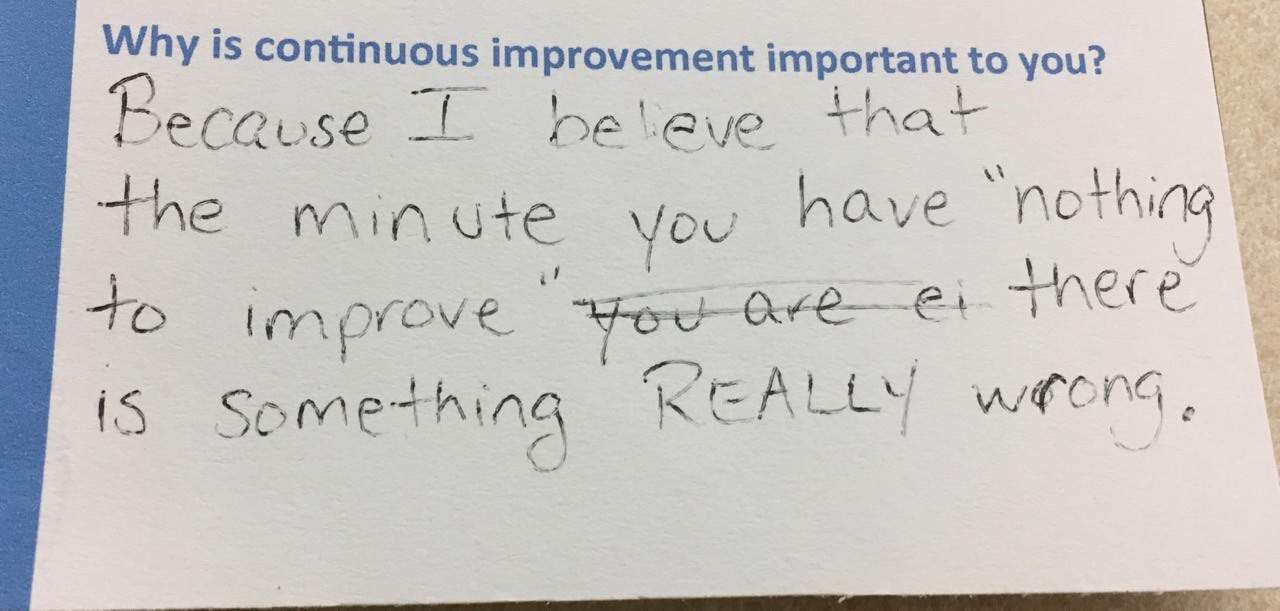 Why is continuous improvement important to you?
Because I believe that
the minute you have "nothing
to improve" you are ei there
is something REALLY wrong.